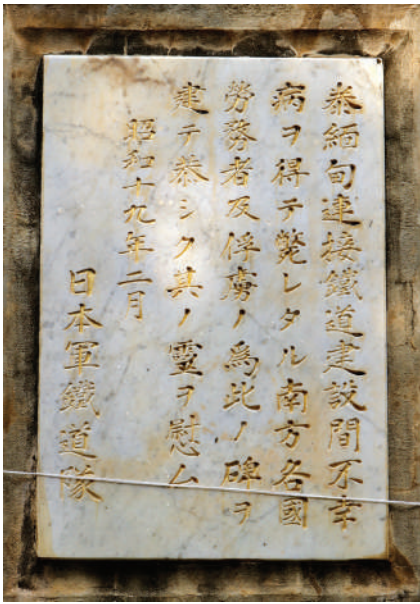 泰緬甸連接鐵道建設間不幸
病ヲ得テ斃レタル南方各國
勞務者及俘虜ノ為此ノ碑ヲ
建テ恭シク其ノ靈ヲ慰ム
昭和十九年二月
日本軍鐵道隊